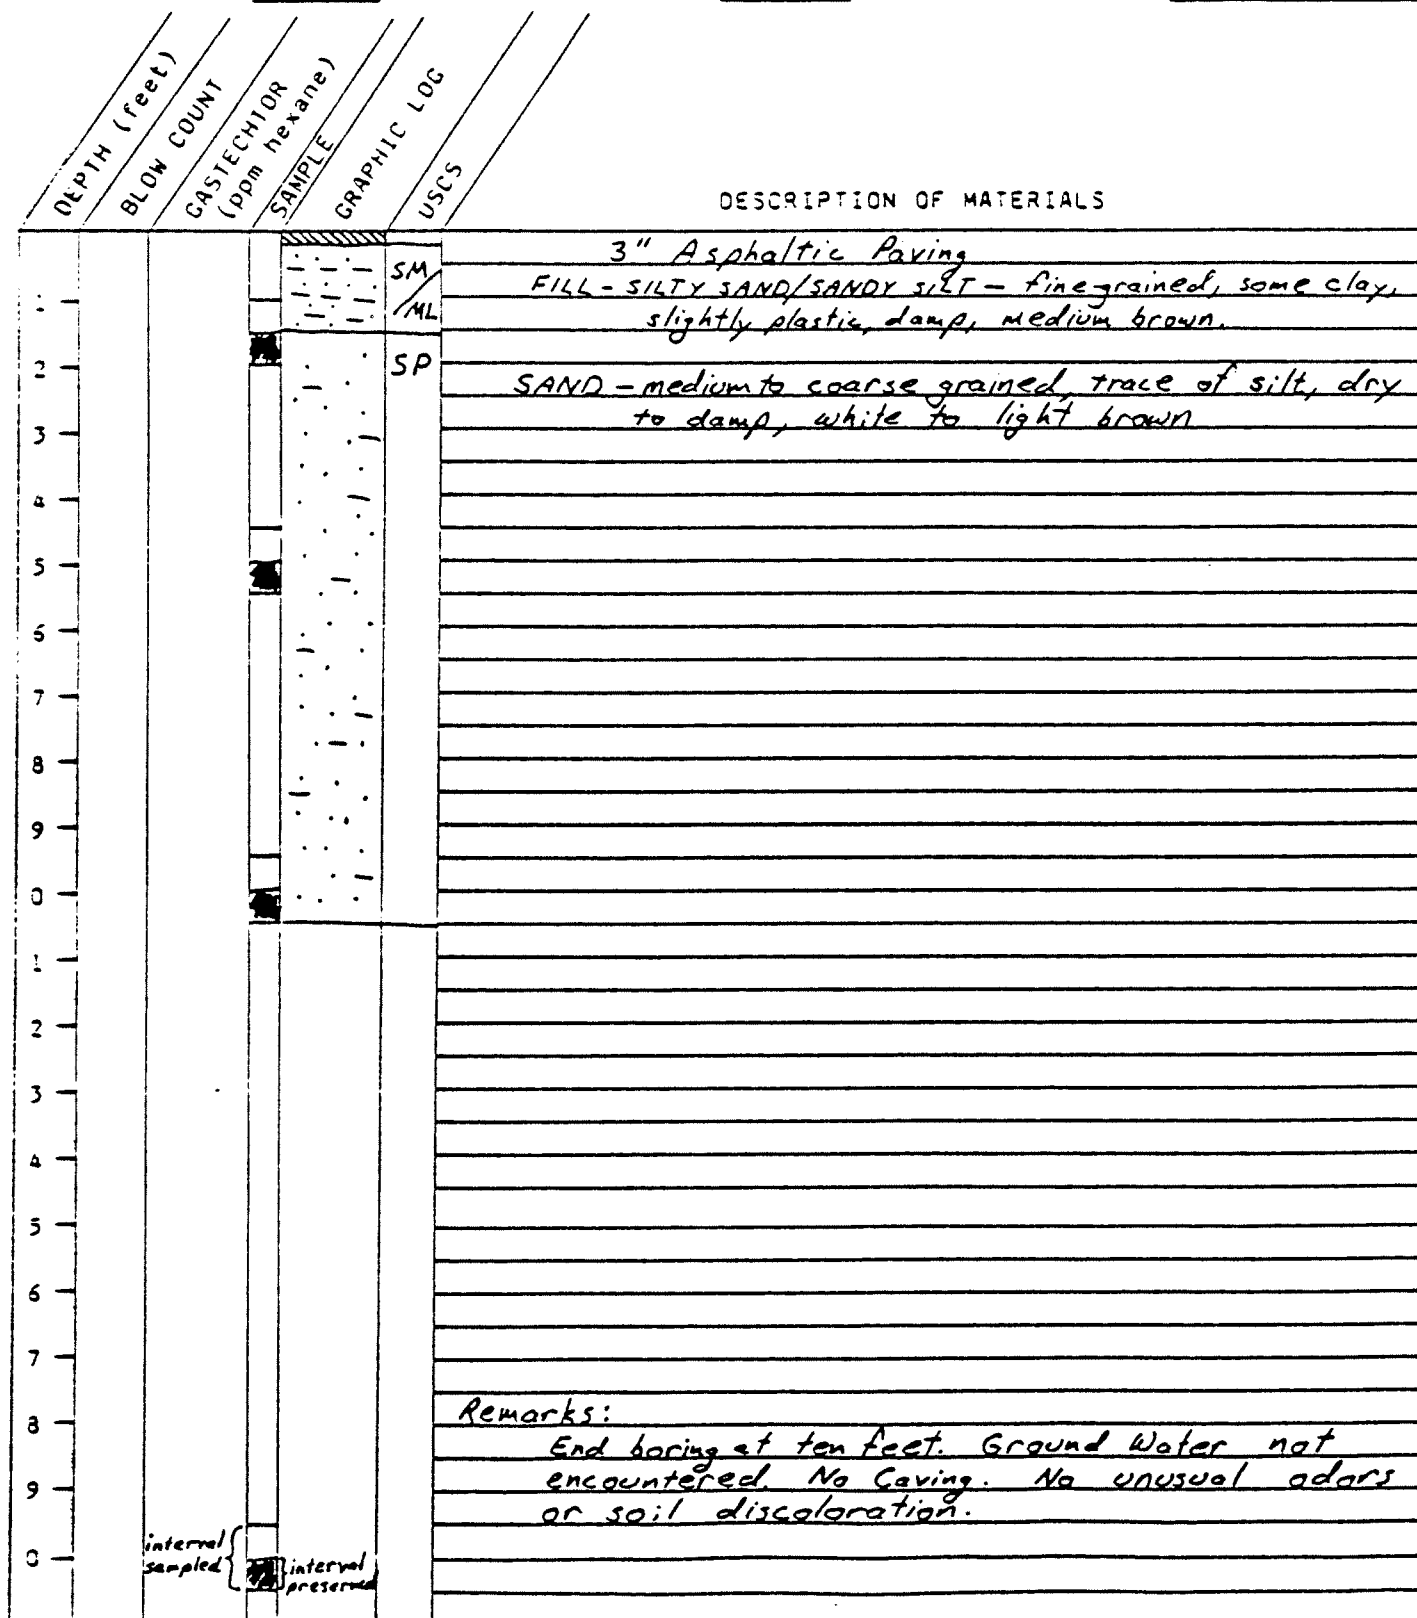 DEPTH (feet)
BLOW COUNT
GASTECHTOR
(ppm hexane)
SAMPLE
GRAPHIC LOG
USCS
DESCRIPTION OF MATERIALS
3" Asphaltic Paving
SM/ML
FILL - SILTY SAND/SANDY SILT - fine grained, some clay,
slightly plastic, damp, medium brown.
2
SP
SAND - medium to coarse grained, trace of silt, dry
3
to damp, white to light brown
4
5
6
7
8
9
0
1
2
3
4
5
6
7
8
Remarks:
End boring at ten feet. Ground Water not
9
encountered. No Caving. No unusual odors
or soil discoloration.
0
interval
sampled
interval
preserved